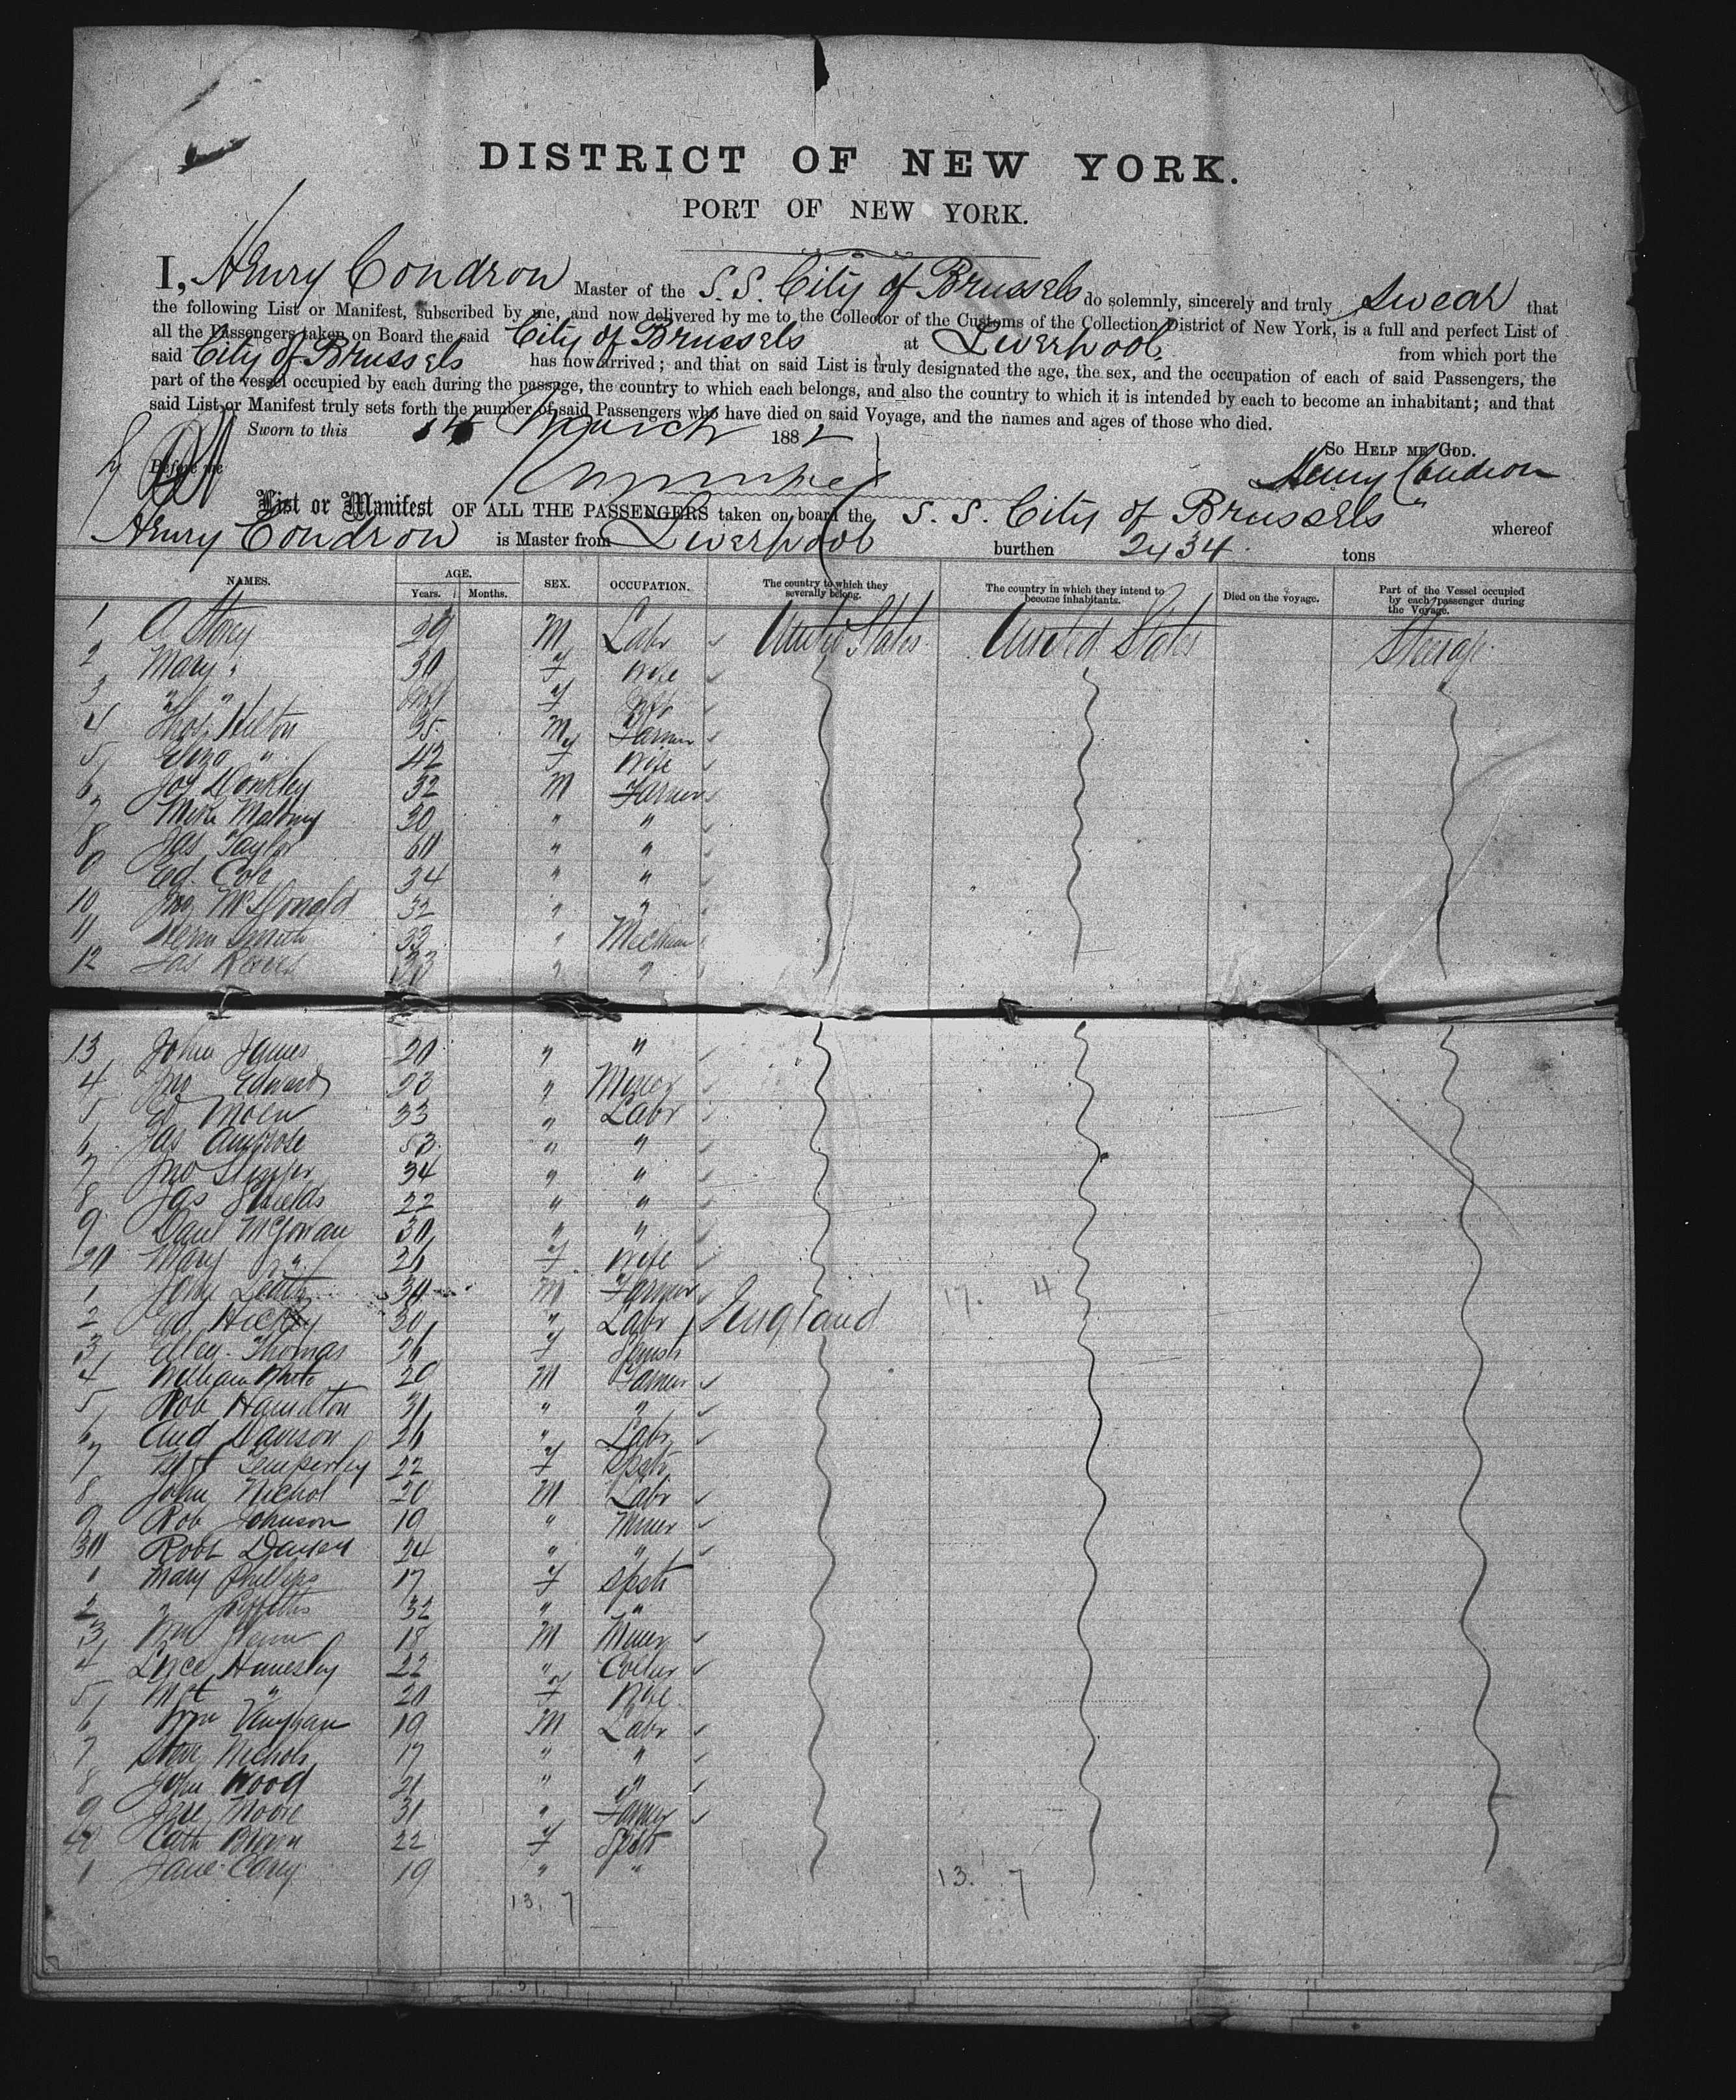 DISTRICT OF NEW YORK.
PORT OF NEW YORK.
I, Henry Condron Master of the S.S. City of Brussels do solemnly, sincerely and truly swear that
the following List or Manifest, subscribed by me, and now delivered by me to the Collector of the Customs of the Collection District of New York, is a full and perfect List of
all the Passengers taken on Board the said City of Brussels at Liverpool from which port the
said City of Brussels has now arrived; and that on said List is truly designated the age, the sex, and the occupation of each of said Passengers, the
part of the vessel occupied by each during the passage, the country to which each belongs, and also the country to which it is intended by each to become an inhabitant; and that
said List or Manifest truly sets forth the number of said Passengers who have died on said Voyage, and the names and ages of those who died.
Sworn to this 14 March 1882
So Help me God.
Before me Henry Condron
List or Manifest OF ALL THE PASSENGERS taken on board the S. S. City of Brussels whereof
Henry Condron is Master from Liverpool burthen 2434 tons
NAMES. AGE. Years. Months. SEX. OCCUPATION. The country to which they severally belong. The country in which they intend to become inhabitants. Died on the voyage. Part of the Vessel occupied by each passenger during the Voyage.
1 A Storey 29 M Labr United States United States Steerage
2 Mary " 30 f Wife
3 " " f
4 Thos Hilton 35 M Farmer
5 Eliza " 42 f Wife
6 Jos Donkley 32 M Farmer
7 Mike Malony 30 " "
8 Jas Taylor 60 " "
9 Ed. Cole 34 " "
10 Jno McDonald 32 " "
11 Smith 33 " Mechan
12 Jas 33 " "
13 John James 20 " "
4 Jno Edwards 23 "
5 Ed 33 " Labr
6 Jas Ambrose 53 " "
7 Jno 34 " "
8 Jas Shields 22 " "
9 Danl McGowan 30 " "
20 Mary " 26 f Wife
1 John 30 M Farmer
2 Ed Hickey 30 " Labr England
3 Thomas 26 f Spnstr
4 William White 20 M Farmer
5 Rob Hamilton 31 " "
6 And Davison 26 " Labr
7 Temperley 22 f Spstr
8 John Nichol 20 M Labr
9 Rob Johnson 19 " Miner
30 Robt 24 " "
1 Mary Phillips 17 f Spstr
2 " Griffiths 32 " "
3 Wm 18 M Miner
4 22 " Collier
5 " 20 f Wife
6 Wm Vaughan 19 M Labr
7 Steve Nichols 17 " "
8 John Wood 21 " "
9 Moore 31 " Farmer
40 Cath Brown 22 f Spstr
1 Jane Carey 19 " "
17. 4
13. 7
13. 7